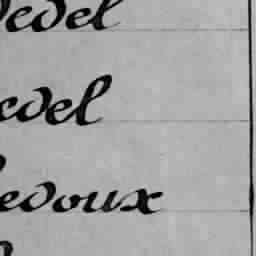 edel
edel
edoux